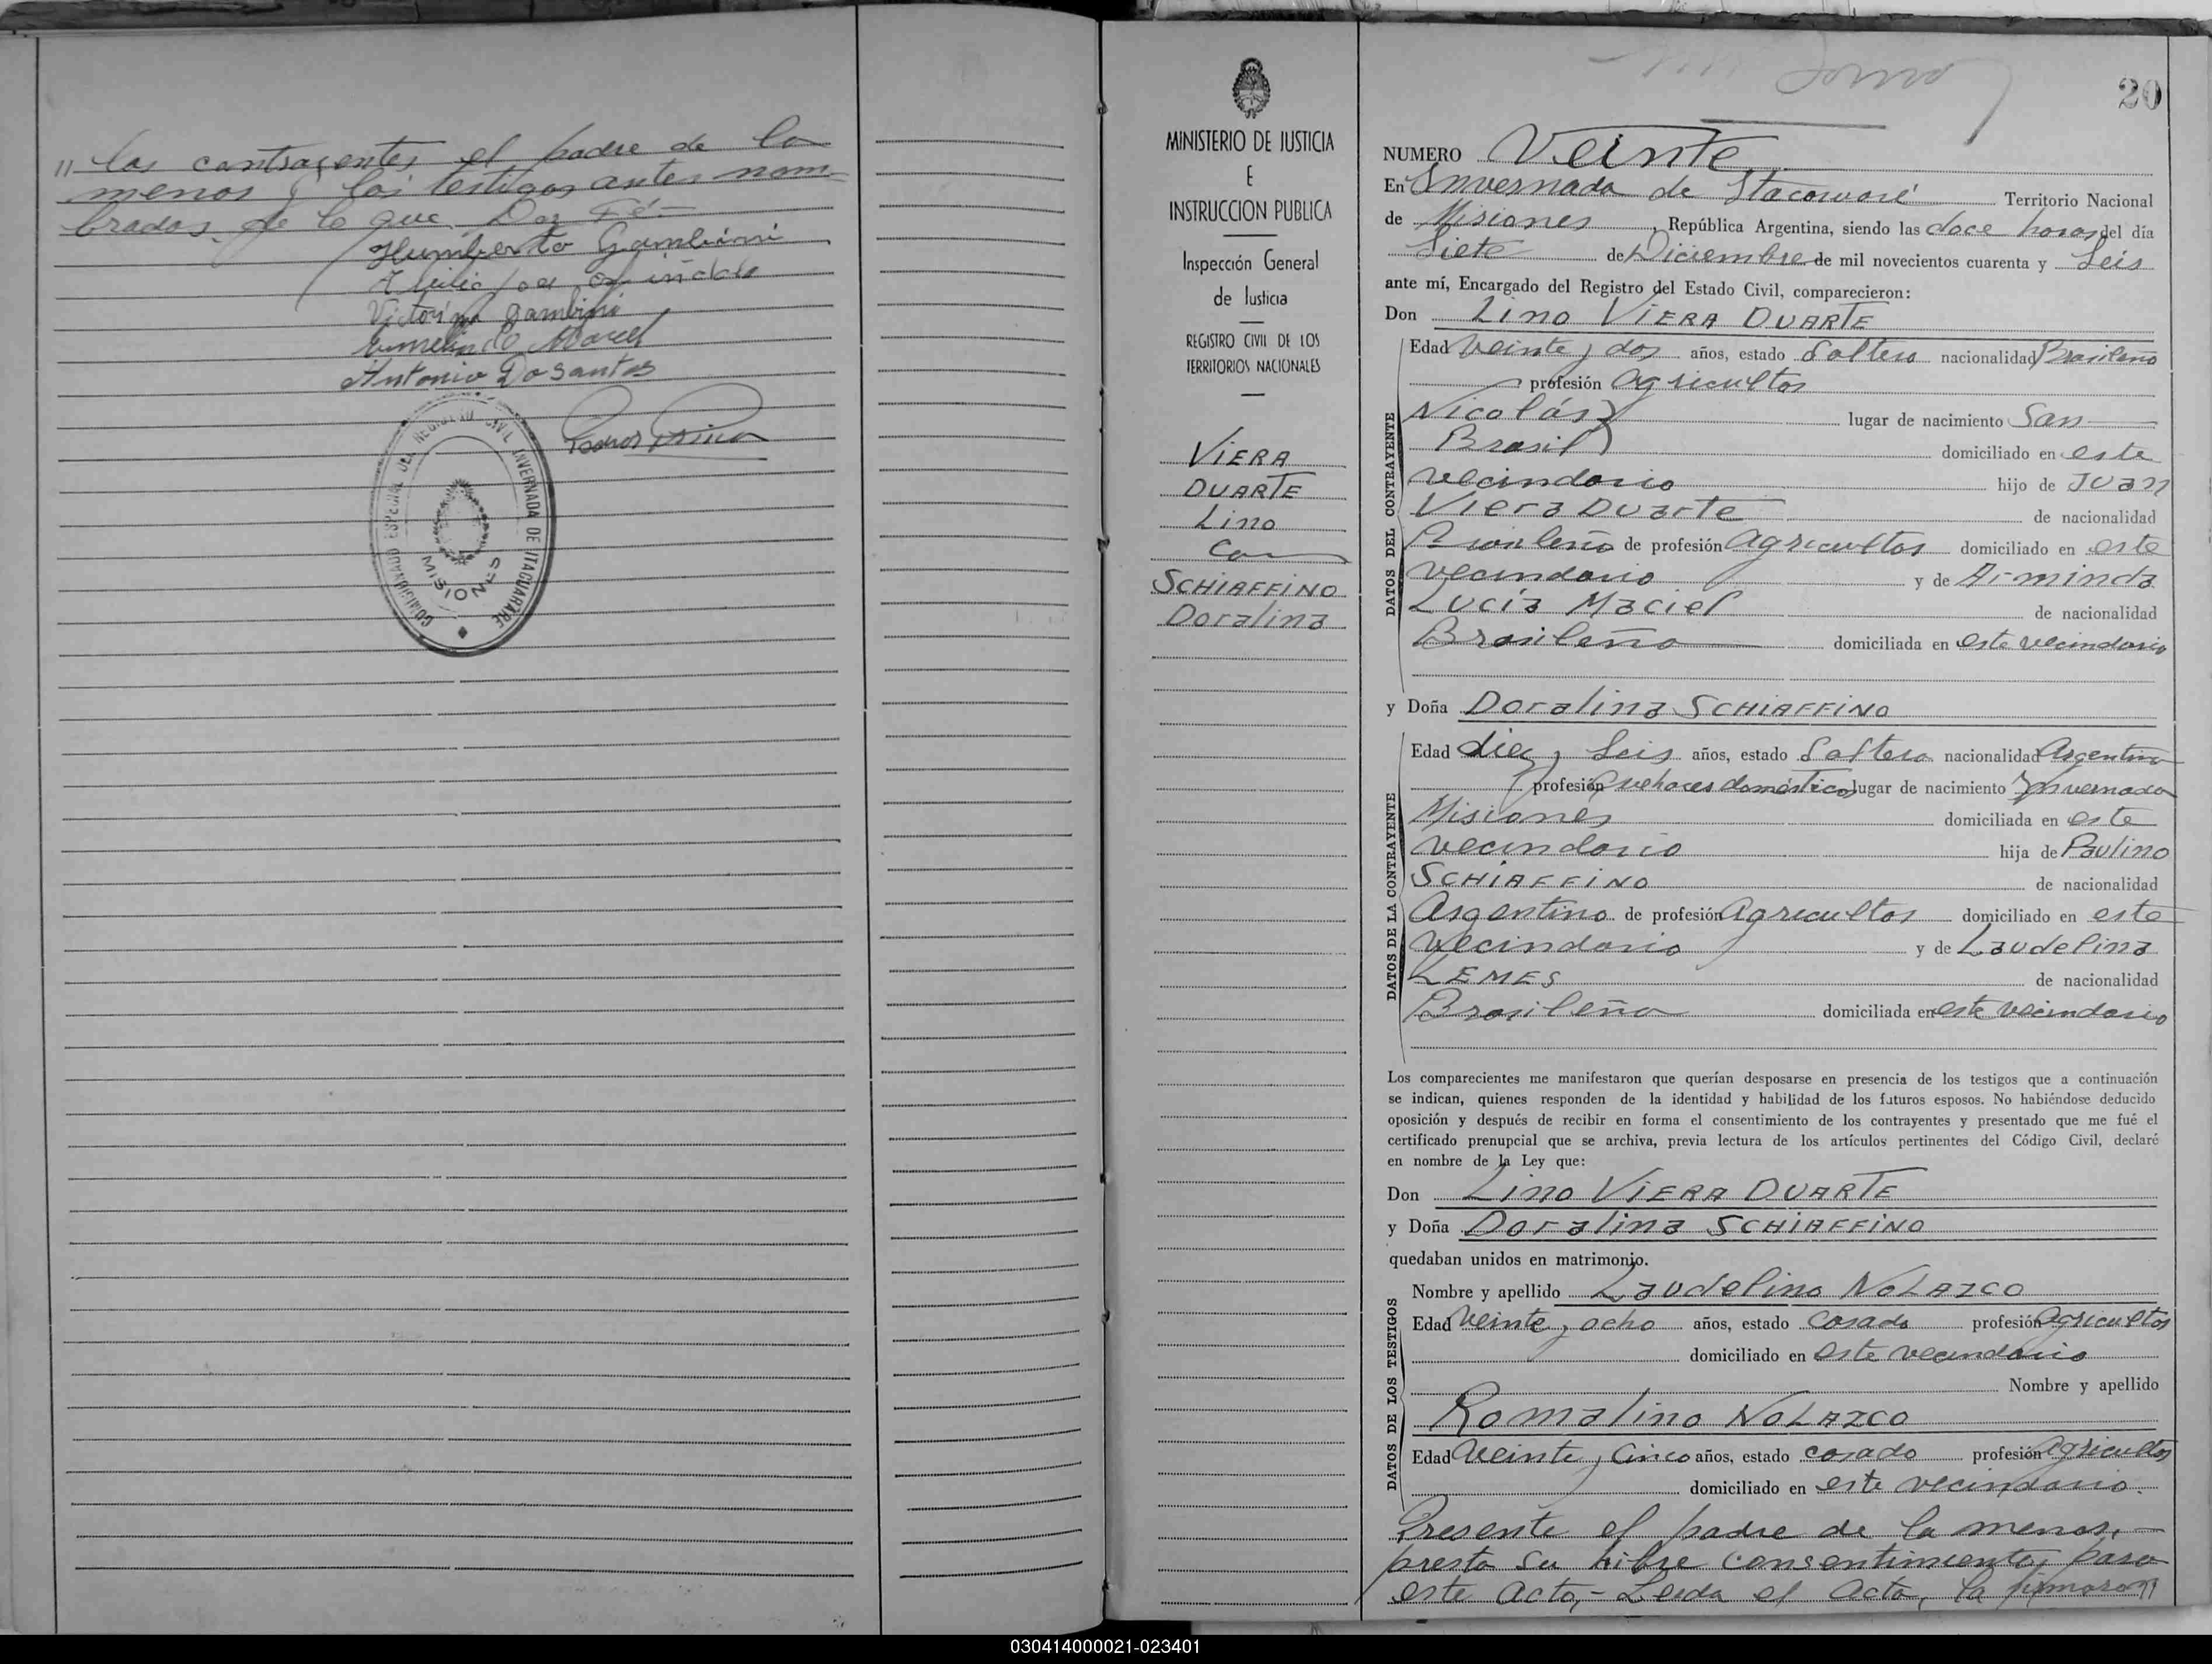 " los contrayentes el padre de la
menor y los testigos antes nom-
brados de lo que Doy Fé.-
Humberto Gambini
Victorina Gambini
Marcel
Antonio Dosantos
COMISIONADO ESPECIAL DEL REGISTRO CIVIL INVERNADA DE ITACUARARE
MISIONES
MINISTERIO DE JUSTICIA
E
INSTRUCCION PUBLICA
Inspección General
de Justicia
REGISTRO CIVIL DE LOS
TERRITORIOS NACIONALES
VIERA
DUARTE
Lino
Con
SCHIAFFINO
Doralina
20
NUMERO Veinte
En Invernada de Itacuararé Territorio Nacional
de Misiones, República Argentina, siendo las doce horas del día
Siete de Diciembre de mil novecientos cuarenta y Seis
ante mí, Encargado del Registro del Estado Civil, comparecieron:
Don Lino VIERA DUARTE
DATOS DEL CONTRAYENTE
Edad Veinte y dos años, estado Soltero nacionalidad Brasileño
profesión Agricultor
Nicolás lugar de nacimiento San
Brasil domiciliado en este
vecindario hijo de Juan
Viera Duarte de nacionalidad
Brasileño de profesión Agricultor domiciliado en este
vecindario y de Arminda
Lucía Maciel de nacionalidad
Brasileña domiciliada en este vecindario
y Doña Doralina SCHIAFFINO
DATOS DE LA CONTRAYENTE
Edad diez y Seis años, estado Soltera nacionalidad Argentina
profesión Quehaceres domésticos lugar de nacimiento Invernada
Misiones domiciliada en este
vecindario hija de Paulino
SCHIAFFINO de nacionalidad
Argentino de profesión Agricultor domiciliado en este
vecindario y de Laudelina
LEMES de nacionalidad
Brasileña domiciliada en este vecindario
Los comparecientes me manifestaron que querían desposarse en presencia de los testigos que a continuación
se indican, quienes responden de la identidad y habilidad de los futuros esposos. No habiéndose deducido
oposición y después de recibir en forma el consentimiento de los contrayentes y presentado que me fué el
certificado prenupcial que se archiva, previa lectura de los artículos pertinentes del Código Civil, declaré
en nombre de la Ley que:
Don Lino VIERA DUARTE
y Doña Doralina SCHIAFFINO
quedaban unidos en matrimonio.
DATOS DE LOS TESTIGOS
Nombre y apellido Laudelino NOLAZCO
Edad Veinte y ocho años, estado Casado profesión Agricultor
domiciliado en este vecindario
Nombre y apellido
Romalino NOLAZCO
Edad Veinte y Cinco años, estado casado profesión Agricultor
domiciliado en este vecindario.
Presente el padre de la menor,-
presta su libre consentimiento, para
este acto,- Leída el Acta, la firmaron"
030414000021-023401